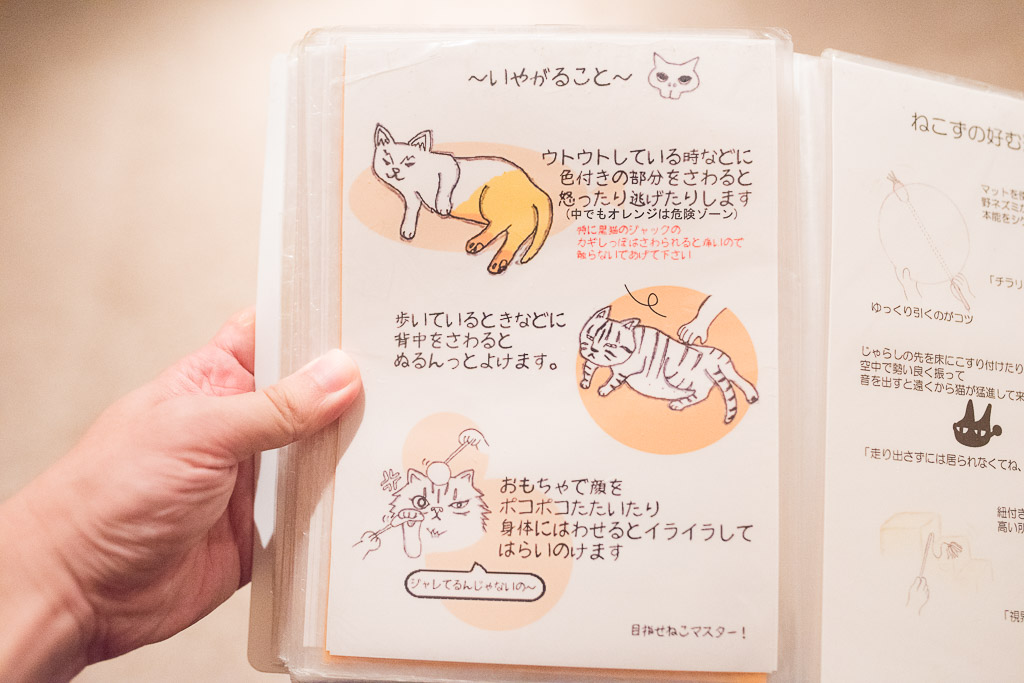 ～いやがること～
ウトウトしている時などに
色付きの部分をさわると
怒ったり逃げたりします
(中でもオレンジは危険ゾーン)
特に黒猫のジャックの
カギしっぽはさわられると痛いので
触らないであげて下さい
歩いているときなどに
背中をさわると
ぬるんっとよけます。
おもちゃで顔を
ポコポコたたいたり
身体にはわせるとイライラして
はらいのけます
ジャレてるんじゃないの～
目指せねこマスター!
ねこずの好む
マットを
野ネズミ
本能をシ
「チラリ
ゆっくり引くのがコツ
じゃらしの先を床にこすり付けたり
空中で勢い良く振って
音を出すと遠くから猫が猛進して来
「走り出さずには居られなくてね、
紐付き
高い所
「視界